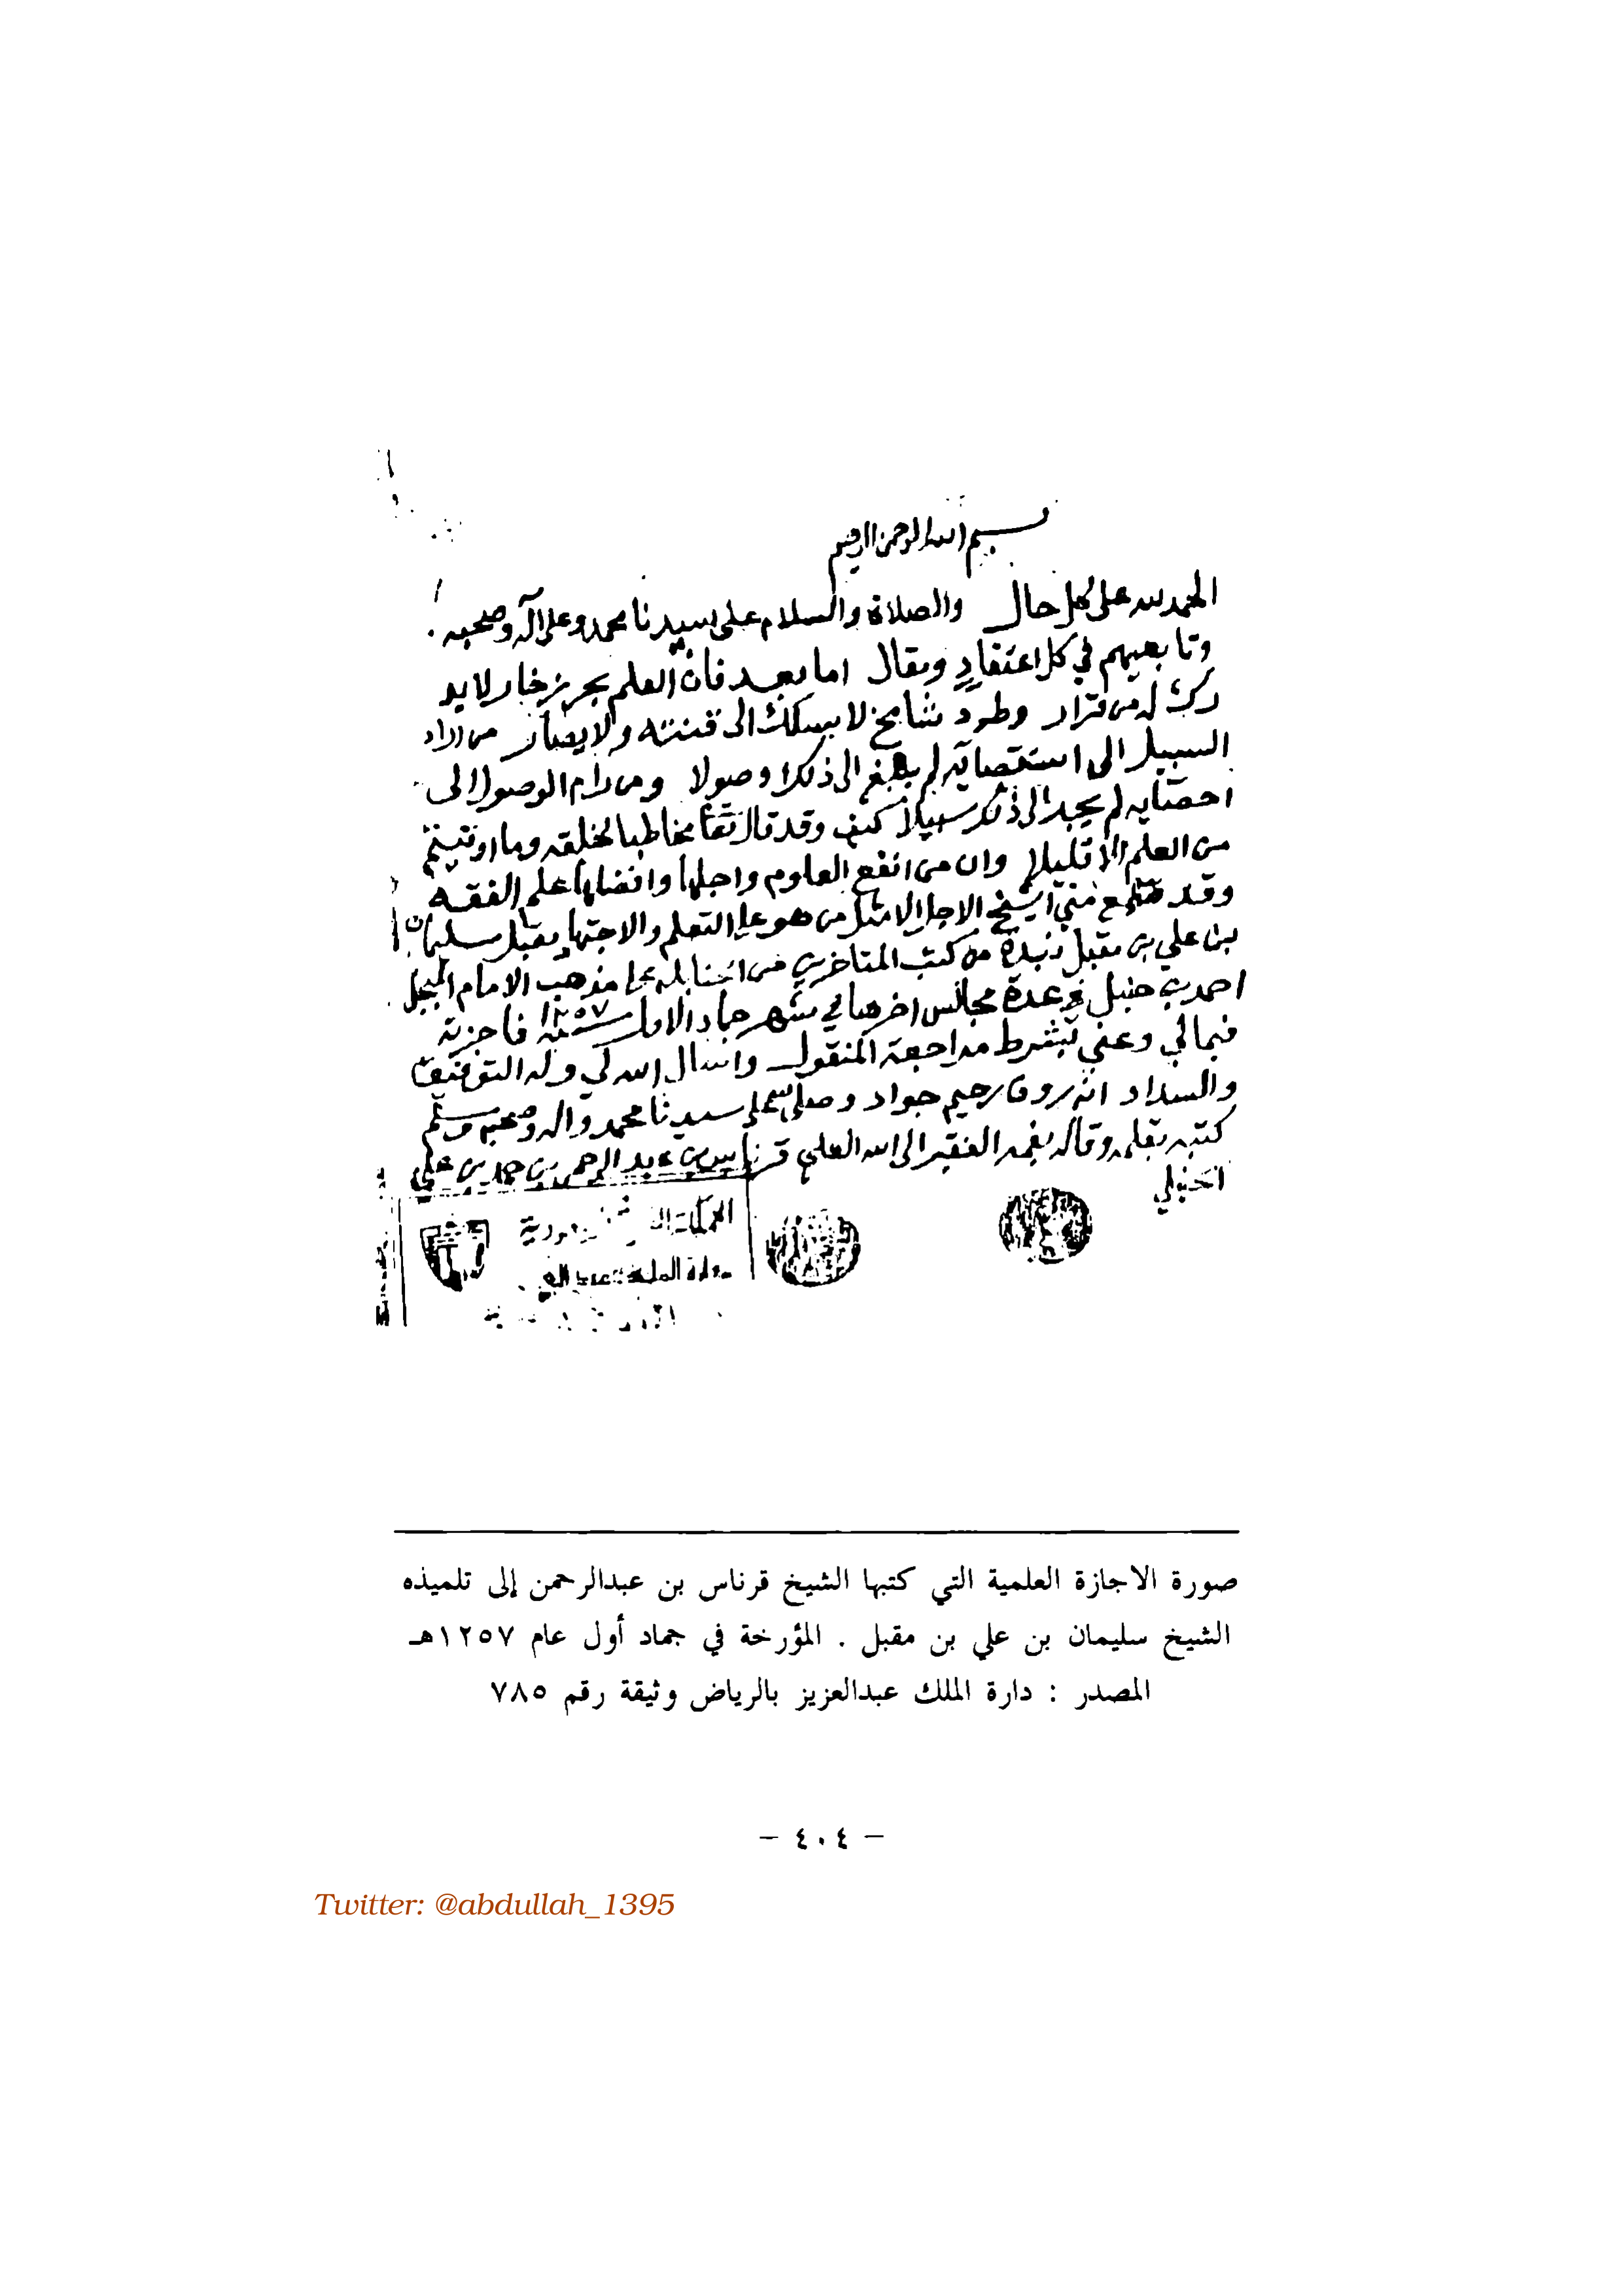 بسم الله الرحمن الرحيم
الحمد لله على كل حال والصلاة والسلام على سيدنا محمد وعلى آله وصحبه
وتابعيهم في كل اعتقاد ومقال اما بعد فان العلم بحر زخار لا يد
رك له من قرار وطود شامخ لا يسلك الى قنته ولا يصار من اراد
السبيل الى استقصائه لم يبلغ الى ذلك وصولا ومن رام الوصول الى
احصايه لم يجد الى ذلك سبيلا كيف وقد قال تعا مخاطبا لخلقه وما اوتيتم
من العلم الا قليلا وان من انفع العلوم واجلها وافضلها علم الفقه
وقد سمع مني الشيخ الاجل الامثل من هو على التعلم والاجتهاد مقبل سليمان
بن علي بن مقبل نبذة من كتب المتاخرين من الحنابلة على مذهب الامام المبجل
احمد بن حنبل في عدة مجالس اخرها في شهر جماد الاول سنة ١٢٥٧ فاجزته
فيما لي وعني بشرط مراجعة المنقول واسال الله لي وله التوفيق
والسداد انه روف رحيم جواد وصلى الله على سيدنا محمد واله وصحبه وسلم
كتبه بقلمه وقاله بفمه الفقير الى الله العلي قرناس بن عبد الرحمن بن حمد بن علي
الحنبلي
صورة الاجازة العلمية التي كتبها الشيخ قرناس بن عبدالرحمن إلى تلميذه
الشيخ سليمان بن علي بن مقبل . المؤرخة في جماد أول عام ١٢٥٧هـ
المصدر : دارة الملك عبدالعزيز بالرياض وثيقة رقم ٧٨٥
– ٤٠٤ –
Twitter: @abdullah_1395